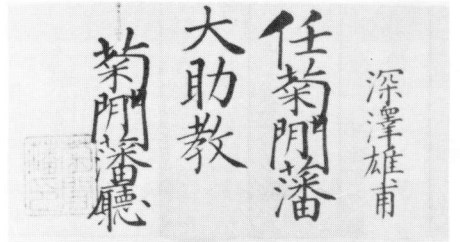 深澤雄甫
任菊間藩
大助教
菊間藩廳